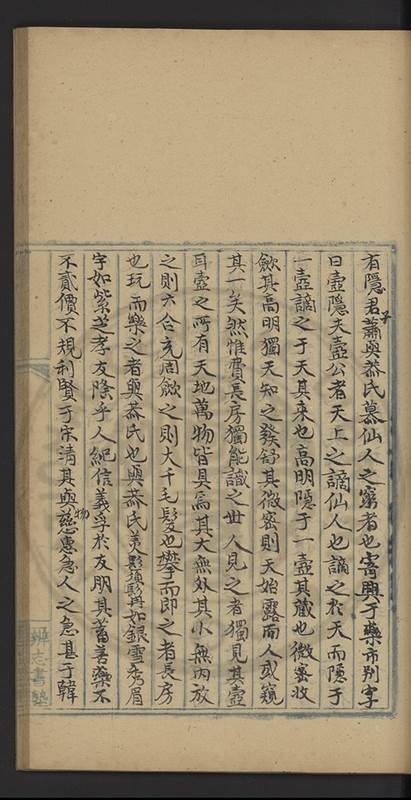 有隱君子蕭與恭氏慕仙人之窮者也寄興于藥市別字
曰壺隱夫壺公者天上之謫仙人也謫之於天而隱于
一壺謫之于天其來也高明隱于一壺其藏也微密收
歛其高明獨天知之發舒其微密則天始露而人或窺
其一矣然惟費長房獨能識之世人見之者獨見其壺
耳壺之所有天地萬物皆具焉其大無外其小無內放
之則六合充周歛之則大千毛髮也攀而即之者長房
也玩而樂之者與恭氏也與恭氏美鬚髯冉如銀雪秀眉
宇如紫芝孝友隆乎人紀信義孚於友朋其蓄善藥不
不貳價不規利賢于宋清其與物慈惠急人之急甚于韓
辨志書塾